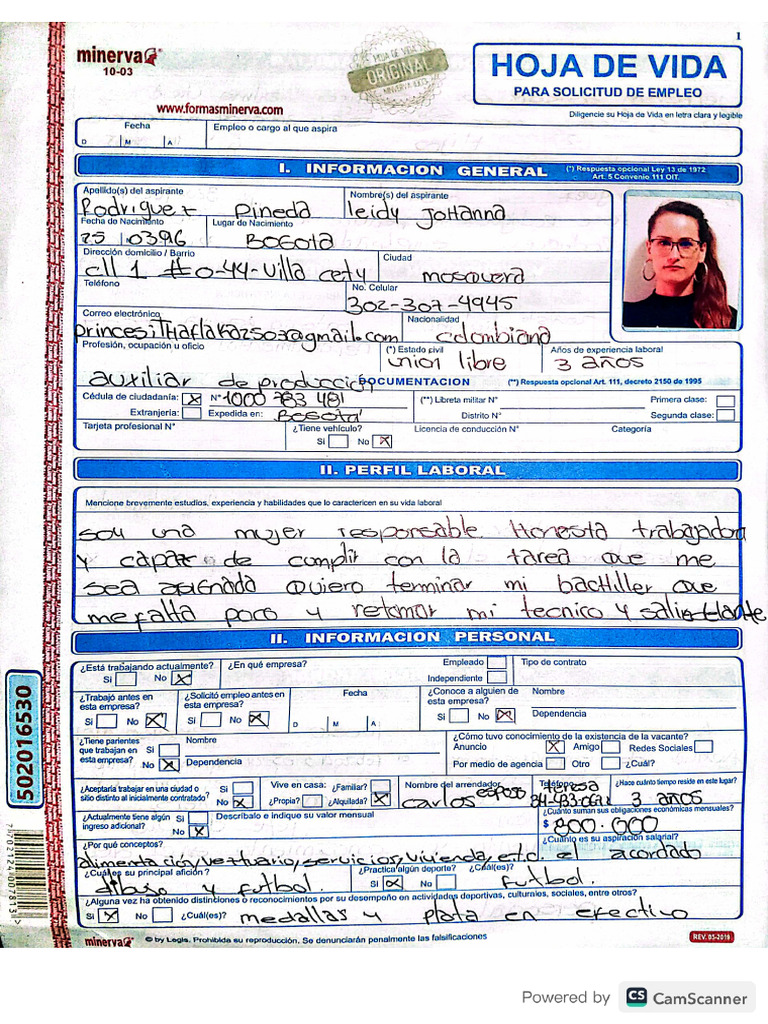 1
minerva
10-03
HOJA DE VIDA ORIGINAL MINERVA
HOJA DE VIDA
PARA SOLICITUD DE EMPLEO
www.formasminerva.com
Diligencie su Hoja de Vida en letra clara y legible
Fecha Empleo o cargo al que aspira
D M A
I. INFORMACION GENERAL (*) Respuesta opcional Ley 13 de 1972 Art. 5 Convenio 111 OIT.
Apellido(s) del aspirante Nombre(s) del aspirante
Rodriguez Pineda leidy JoHanna
Fecha de Nacimiento Lugar de Nacimiento
25 03 96 Bogota
Dirección domicilio / Barrio Ciudad
cll 1 #0-44-Villa cety mosquera
Teléfono No. Celular
302-307-4945
Correo electrónico Nacionalidad
princesiTHaflaka2503@gmail.com colombiana
Profesión, ocupación u oficio (*) Estado civil Años de experiencia laboral
auxiliar de produccion union libre 3 años
DOCUMENTACION (**) Respuesta opcional Art. 111, decreto 2150 de 1995
Cédula de ciudadanía: X N° 1000 783 481 (**) Libreta militar N° Primera clase:
Extranjería: Expedida en: Bogota Distrito N° Segunda clase:
Tarjeta profesional N° ¿Tiene vehículo? Licencia de conducción N° Categoría
Si No X
II. PERFIL LABORAL
Mencione brevemente estudios, experiencia y habilidades que lo caractericen en su vida laboral
soy una mujer responsable Honesta trabajadora
y capaz de cumplir con la tarea que me
sea asignada Quiero terminar mi bacHiller que
me falta poco y retomar mi tecnico y salir
II. INFORMACION PERSONAL
¿Está trabajando actualmente? ¿En qué empresa? Empleado Tipo de contrato
Si No X Independiente
¿Trabajó antes en esta empresa? ¿Solicitó empleo antes en esta empresa? Fecha ¿Conoce a alguien de esta empresa? Nombre
Si No X Si No X D M A Si No X Dependencia
¿Tiene parientes que trabajan en esta empresa? Si No X Nombre Dependencia
¿Cómo tuvo conocimiento de la existencia de la vacante?
Anuncio X Amigo Redes Sociales
Por medio de agencia Otro ¿Cuál?
¿Aceptaría trabajar en una ciudad o sitio distinto al inicialmente contratado? Si No X
Vive en casa: ¿Familiar? ¿Propia? ¿Alquilada? X
Nombre del arrendador Teléfono ¿Hace cuánto tiempo reside en este lugar?
carlos esposo teresa 3 años
¿Actualmente tiene algún ingreso adicional? Si No X Descríbalo e indique su valor mensual
¿Cuánto suman sus obligaciones económicas mensuales?
$ 800.000
¿Por qué conceptos? ¿Cuánto es su aspiración salarial?
alimentación, vestuario, servicios, vivienda, etc. el acordado
¿Cuál es su principal afición? ¿Practica algún deporte? ¿Cuál(es)?
dibujo y futbol. Si X No futbol.
¿Alguna vez ha obtenido distinciones o reconocimientos por su desempeño en actividades deportivas, culturales, sociales, entre otros?
Si X No ¿Cuál(es)? medallas y plata en efectivo
minerva © by Legis. Prohibida su reproducción. Se denunciarán penalmente las falsificaciones REV. 05-2019
502016530
Powered by CS CamScanner